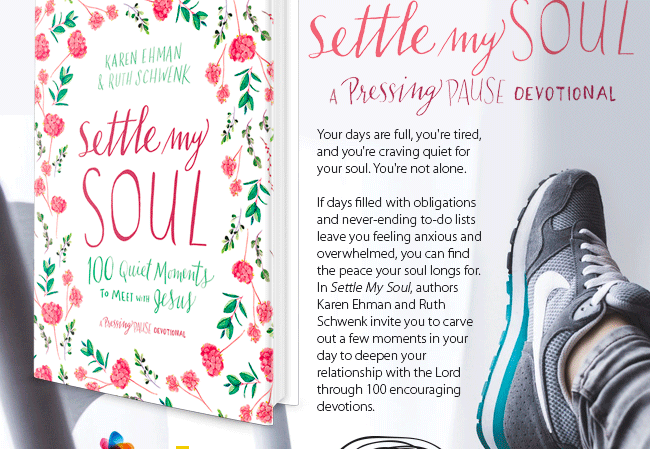 KAREN EHMAN
& RUTH SCHWENK
settle my
SOUL
100 Quiet Moments
TO MEET WITH Jesus
A Pressing PAUSE DEVOTIONAL
settle my SOUL
A Pressing PAUSE DEVOTIONAL
Your days are full, you're tired,
and you're craving quiet for
your soul. You're not alone.
If days filled with obligations
and never-ending to-do lists
leave you feeling anxious and
overwhelmed, you can find
the peace your soul longs for.
In Settle My Soul, authors
Karen Ehman and Ruth
Schwenk invite you to carve
out a few moments in your
day to deepen your
relationship with the Lord
through 100 encouraging
devotions.